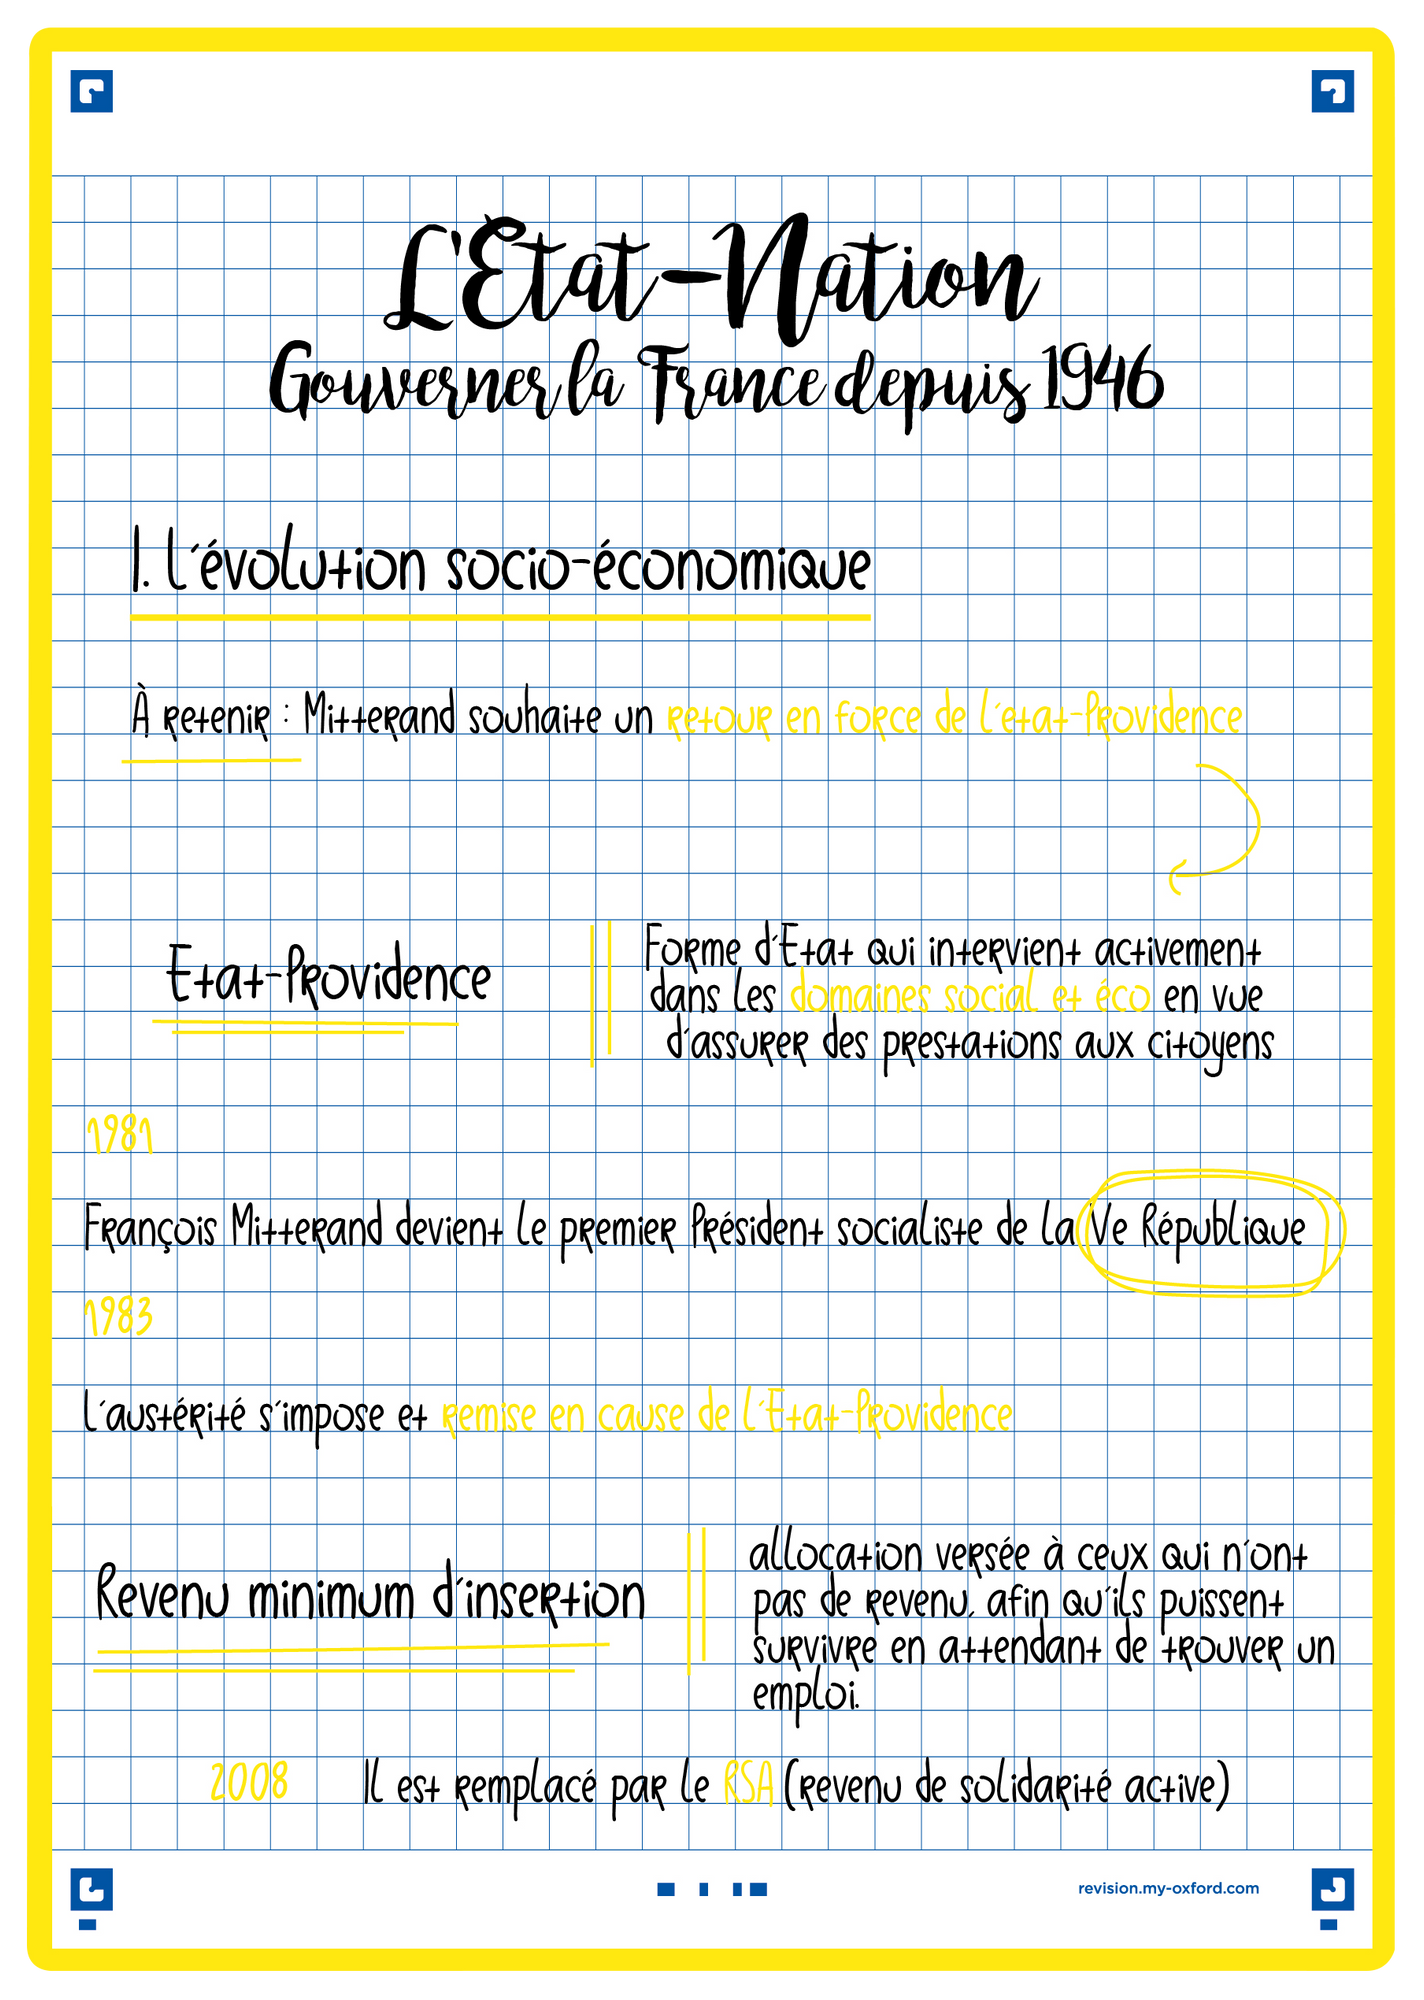 L'Etat-Nation
Gouverner la France depuis 1946
I. L'évolution socio-économique
À retenir : Mitterand souhaite un retour en force de l'etat-Providence
Etat-Providence
Forme d'Etat qui intervient activement
dans les domaines social et éco en vue
d'assurer des prestations aux citoyens
1981
François Mitterand devient le premier Président socialiste de la Ve République
1983
L'austérité s'impose et remise en cause de l'Etat-Providence
Revenu minimum d'insertion
allocation versée à ceux qui n'ont
pas de revenu, afin qu'ils puissent
survivre en attendant de trouver un
emploi.
2008 Il est remplacé par le RSA (revenu de solidarité active)
revision.my-oxford.com